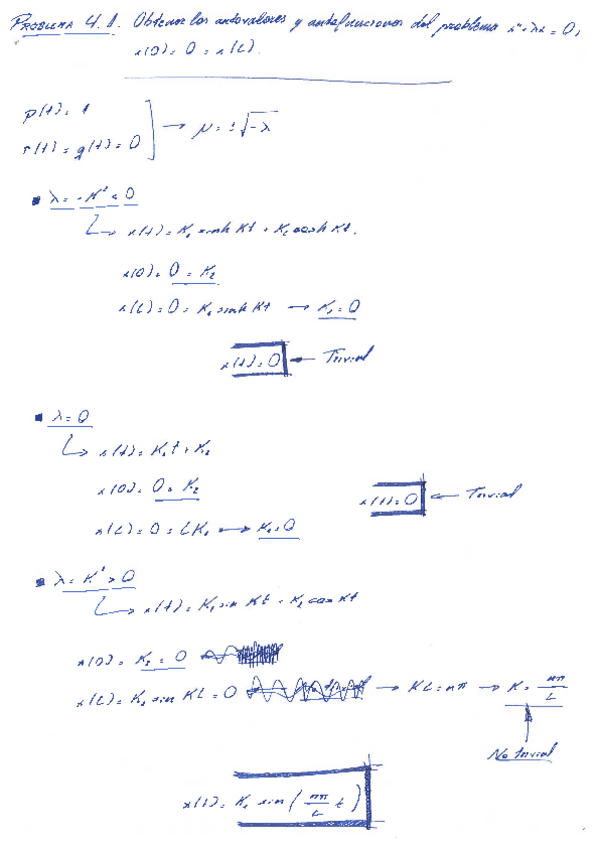 PROBLEMA 4.1. Obtener los autovalores y autofunciones del problema x'' + λx = 0,
x(0) = 0 = x(L).
p(t) = 1
r(t) = q(t) = 0 → μ = ±√-λ
λ = -K² < 0
x(t) = K₁ sinh Kt + K₂ cosh Kt.
x(0) = 0 = K₂
x(L) = 0 = K₁ sinh Kt → K₁ = 0
x(t) = 0 ← Trivial
λ = 0
x(t) = K₁t + K₂
x(0) = 0 = K₂
x(t) = 0 ← Trivial
x(L) = 0 = LK₁ → K₁ = 0
λ = K² > 0
x(t) = K₁ sin Kt + K₂ cos Kt
x(0) = K₂ = 0
x(L) = K₁ sin KL = 0 → KL = nπ → K = nπ/L
No trivial
x(t) = K₁ sin (nπ/L t)